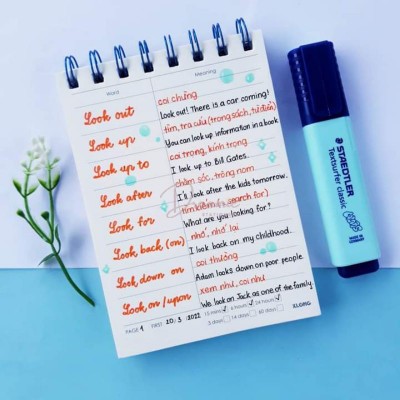 Word Meaning
Look out coi chừng
Look out! There is a car coming!
Look up tìm, tra cứu (trong sách, từ điển)
You can look up information in a book
Look up to coi trọng, kính trọng
I look up to Bill Gates.
Look after chăm sóc, trông nom
I'll look after the kids tomorrow.
Look for tìm kiếm (search for)
What are you looking for?
Look back (on) nhớ, nhớ lại
I look back on my childhood.
Look down on coi thường
Adam looks down on poor people.
Look on/upon xem như, coi như
We look on Jack as one of the family
PAGE 1 FIRST 20/3/2022 15 mins 6 hours 24 hours KLONG
3 days 14 days 60 days
STAEDTLER
Textsurfer classic